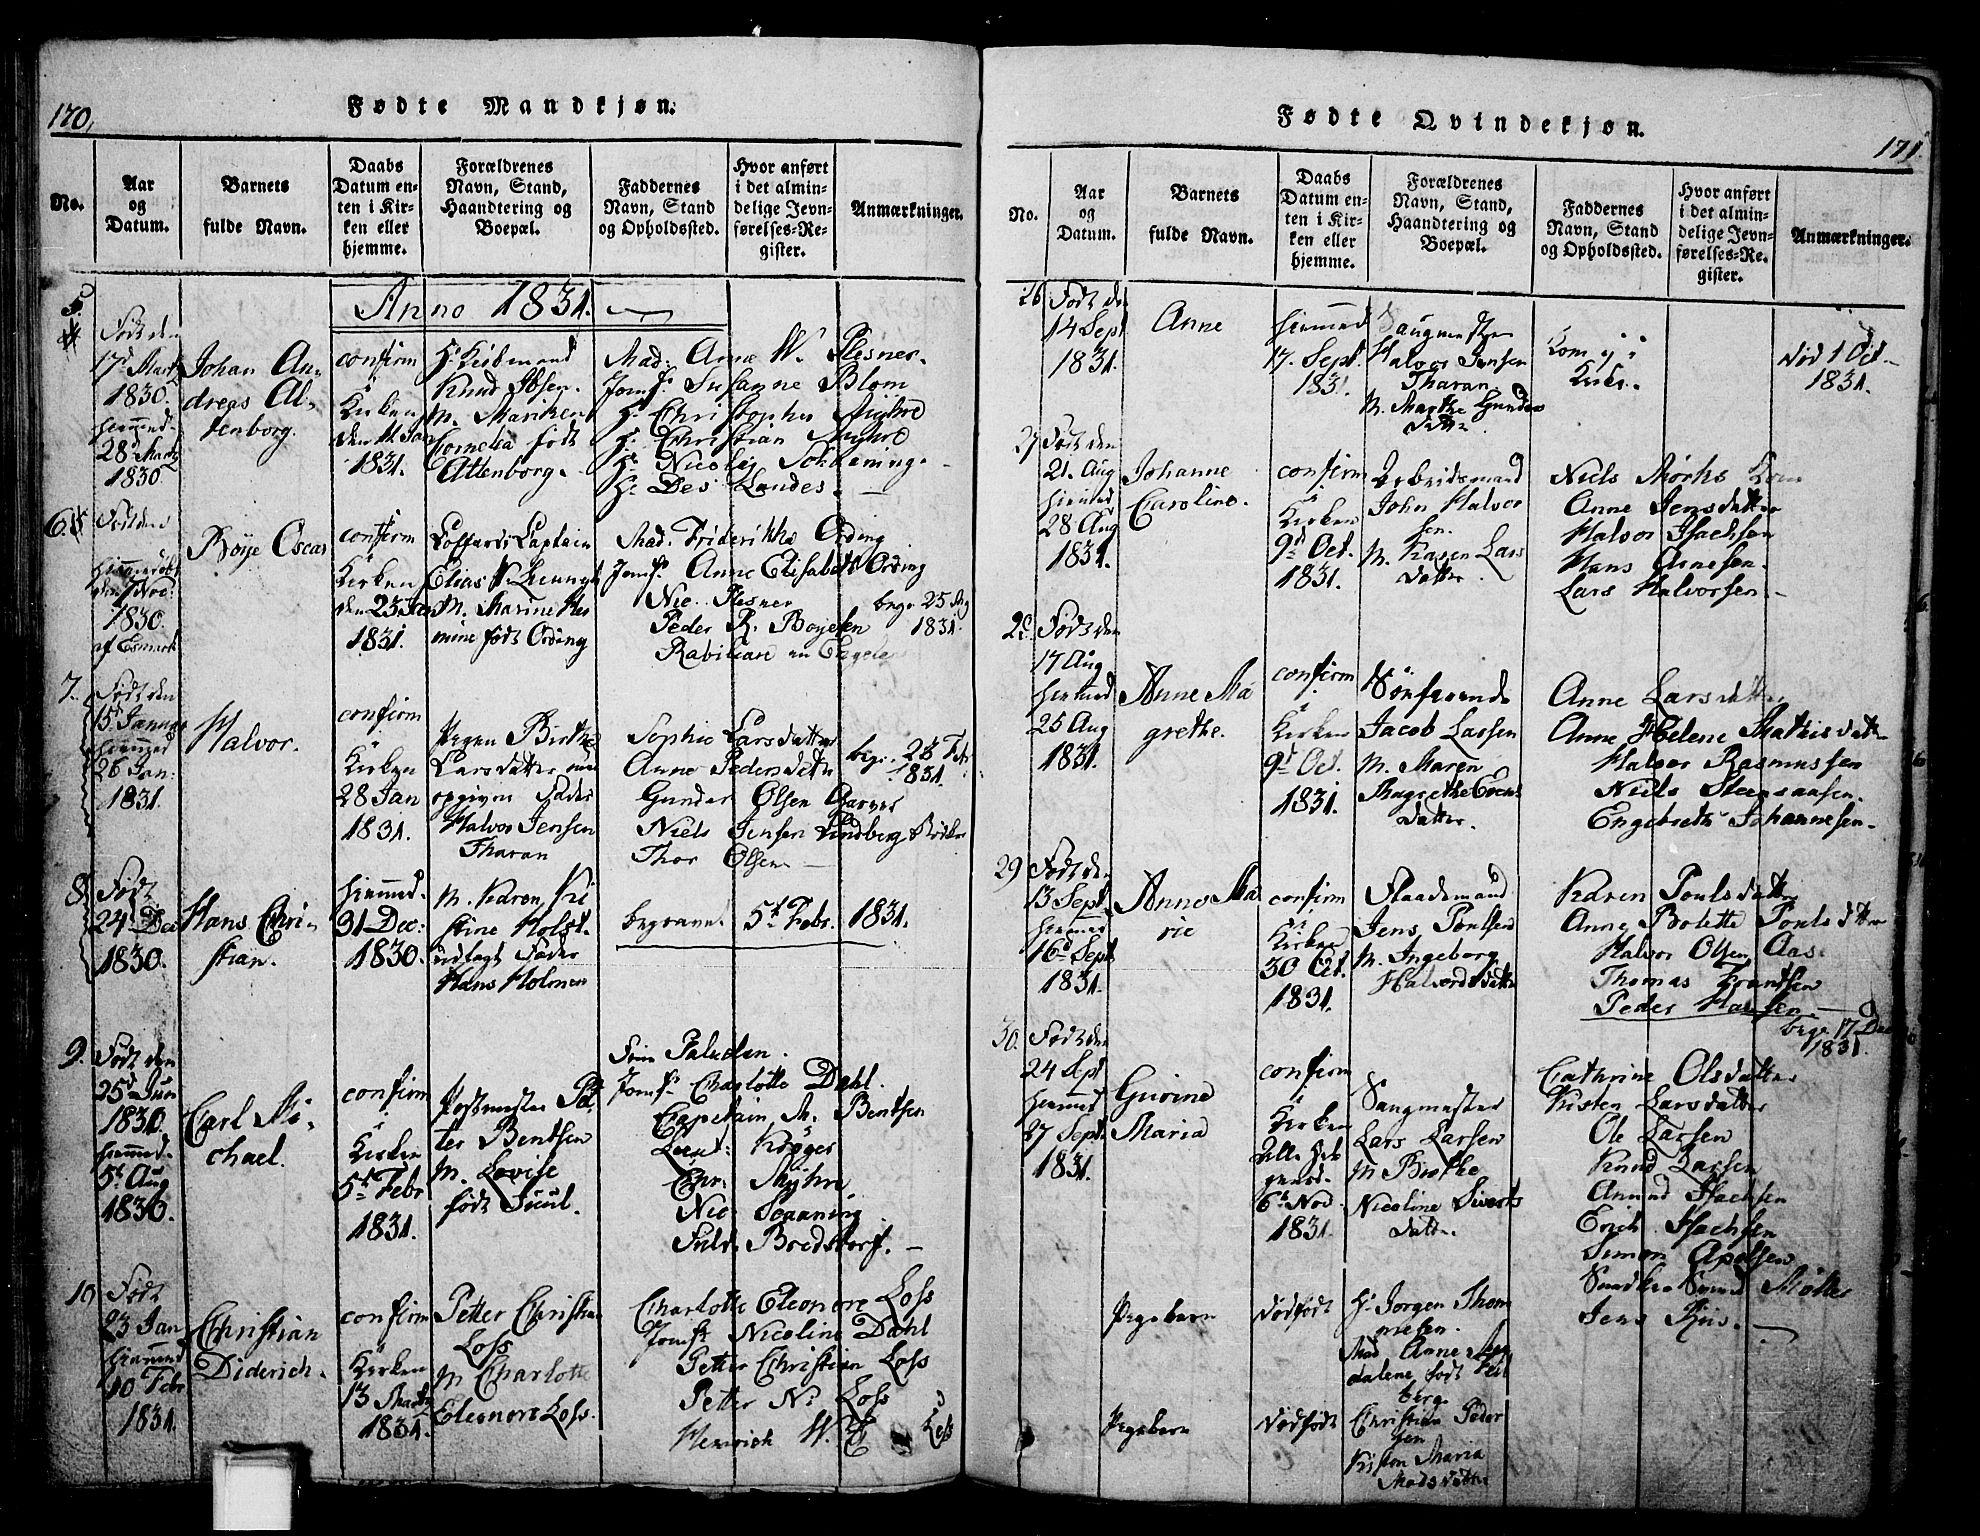 170.
Fødte Mandkjøn.
No.
Aar
og
Datum.
Barnets
fulde Navn.
Daabs
Datum en-
ten i Kir-
ken eller
hjemme.
Forældrenes
Navn, Stand,
Haandtering og
Boepæl.
Faddernes
Navn, Stand
og Opholdssted.
Hvor anført
i det almin-
delige Jevn-
førelses-Re-
gister.
Anmærkninger.
Anno 1831.
5.
Født den
17d Martz
1830.
hjemmed.
28d Martz
1830
Johan An-
dreas Al-
tenborg.
confirm
i
Kirken
1831.
Hr Kiöbmand
Knud Ibsen.
M. Marichen
Cornelia født
Altenborg.
Mad. Anne W. Plesner.
Jomfr Susanne Blom
Hr Christopher Myhre
Hr Christian Myhre
Hr Nicolej
Hr Des Landes.
6.
Født den
1830.
af Esmark
Boye Oscar
confirm
i
Kirken
1831.
Captain
Elias
M. Marine Her
mine født Ording
Mad. Friderikke Ording
Jomfr. Anne Elisabeth Ording
Nic. Plesner
Peder R. Boyesen
begr 25 Aug
1831.
7.
Født den
15d Januar
hjemmed
26 Jan:
1831.
Halvor.
confirm
i
Kirken
28 Jan
1831.
Pigen Birthe
Larsdatter
opgiven Fader
Halvor Jensen
Tharan
Sophie Larsdatter
Anne Pedersdatter
Gunder Olsen
Niels Jensen Lindberg
Thor Olsen
1831
8.
Født
24d Dec
1830.
Hans Chri-
stian.
hjemmed.
31 Dec:
1830.
M. Karen Kri
stine Holst.
udlagt Fader
Hans Holmen
begravet 5t Febr. 1831.
9.
Født den
25d Juni
1830.
hiemmed.
5t Aug
1830.
Carl Mi-
chael.
confirm
i
Kirken
5t Febr
1831.
Postmester Pet
ter Bentsen
M. Lovise
født Juul.
Paludan.
Jomfr Charlotte Dahl.
Capetain M. Bentsen
Lieut: Krøger
Chr. Myhre
Nic.
Fuld. Bredstorf.
10
Født
23 Jan
hiemmed
10 Febr
1831.
Christian
Diderich.
confirm
i
Kirken
13 Martz
1831.
Petter Christian
Loss
M Charlotte
Eleonore Loss.
Charlotte Eleonore Loss
Jomfr Nicoline Dahl
Petter Christian Loss
Petter N. Loss
Henrich W. Loss
Fødte Qvindekjøn.
171.
No.
Aar
og
Datum.
Barnets
fulde Navn.
Daabs
Datum en-
ten i Kir-
ken eller
hjemme.
Forældrenes
Navn, Stand,
Haandtering og
Boepæl.
Faddernes
Navn, Stand
og Opholdssted.
Hvor anført
i det almin-
delige Jevn-
førelses-Re-
gister.
Anmærkninger.
26
Født den
14 Sept
1831.
Anne
hiemmed
17. Sept.
1831.
Saugmester
Halvor Jensen
Tharan
M. Marthe Gunders
datter
Kom ej i
Kirke.
Død 1 Oct.
1831.
27
Født den
21. Aug
hiemmed
28 Aug
1831.
Johanne
Caroline.
confirm
i
Kirken
9d Oct.
1831.
Arbeidsmand
John Halvor
sen.
M. Karen Lars
datter.
Niels Mørks Kone
Anne Jensdatter
Halvor Isachsen
Hans Arnesen.
Lars Halvorsen.
28
Født den
17 Aug
hiemmed
25 Aug
1831.
Anne Ma
grethe.
confirm
i
Kirken
9d Oct.
1831.
Jacob Lassen
M. Maren
Magrethe Evens
datter.
Anne Larsdatter
Anne Helene Mathisdatter
Halvor Rasmussen
Niels
Engebreth Johannesen.
29
Født den
13 Sept.
hiemmed
16d Sept
1831.
Anne Ma
rie
confirm
i
Kirken
30 Oct.
1831.
Flaadsmand
Jens Poulsen
M. Ingeborg
Halvordsdatter
Karen Poulsdatter
Anne Bolette Poulsdatter
Halvor Olsen Aas
Thomas
Peder Hansen
begr. 17 Dec
1831.
30.
Født den
24 Sept
hiemmed
27 Sept.
1831.
Gurine
Maria
confirm
i
Kirken
Alle Hel
gensd.
6t Nov
1831.
Saugmester
Lars Larsen
M Birthe
Nicoline Siverts
datter.
Cathrine Olsdatter
Kirsten Larsdatter
Ole Larsen
Knud Larsen
Amund Isachsen
Erich Isachsen
Simon Apelsen
Jens Riis.
Pigebarn
Dødfødt
Hr Jørgen Thom
mesen.
Mad Anne Mag
dalene født Feil
berg.
Pigebarn
Dødfødt
Christian Peder
sen
Kirsten Maria
Madsdatter